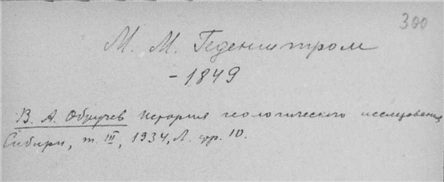 300
М. М. Геденштром
-1849
В. А. Обручев История геологического исследования
Сибири, т. III, 1934, Л. стр. 10.